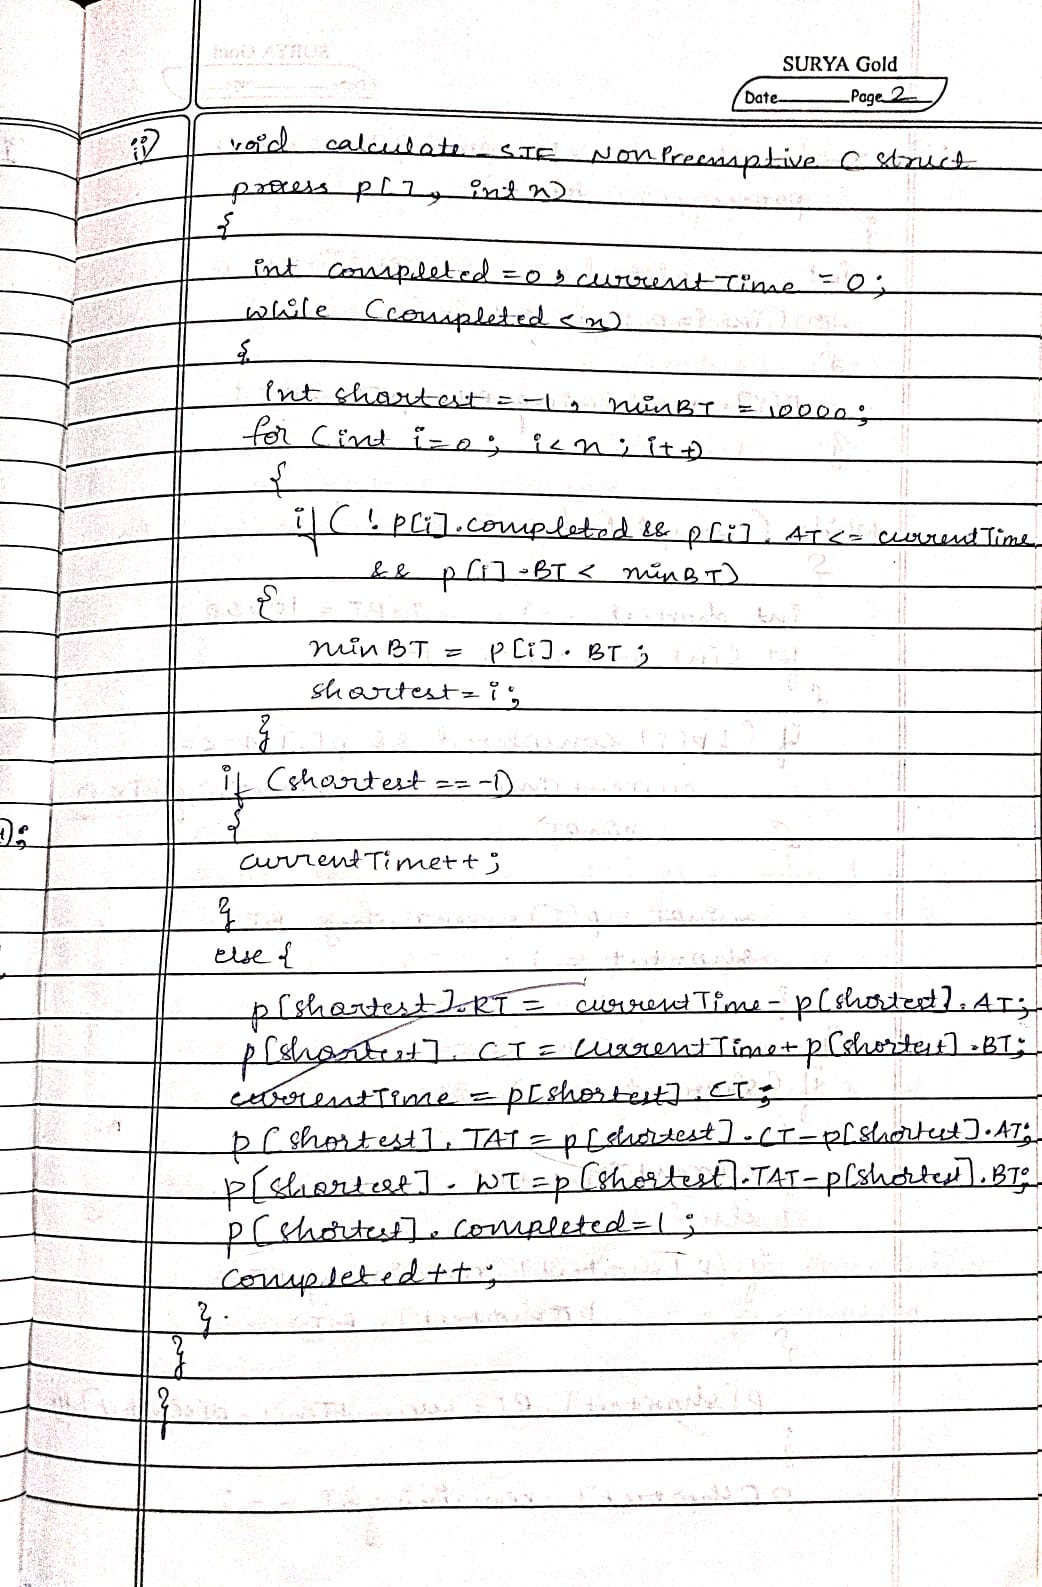 SURYA Gold
Date Page 2
ii) void calculate_SJF NonPreemptive (struct
process p[], int n)
{
int completed = 0, currentTime = 0;
while (completed < n)
{
int shortest = -1, minBT = 10000;
for (int i=0; i<n; i++)
{
if (!p[i].completed && p[i].AT <= currentTime
&& p[i].BT < minBT)
{
minBT = p[i].BT;
shortest = i;
}
if (shortest == -1)
{
currentTime++;
}
else {
p[shortest].RT = currentTime - p[shortest].AT;
p[shortest].CT = currentTime + p[shortest].BT;
currentTime = p[shortest].CT;
p[shortest].TAT = p[shortest].CT - p[shortest].AT;
p[shortest].WT = p[shortest].TAT - p[shortest].BT;
p[shortest].completed = 1;
completed++;
}
}
}